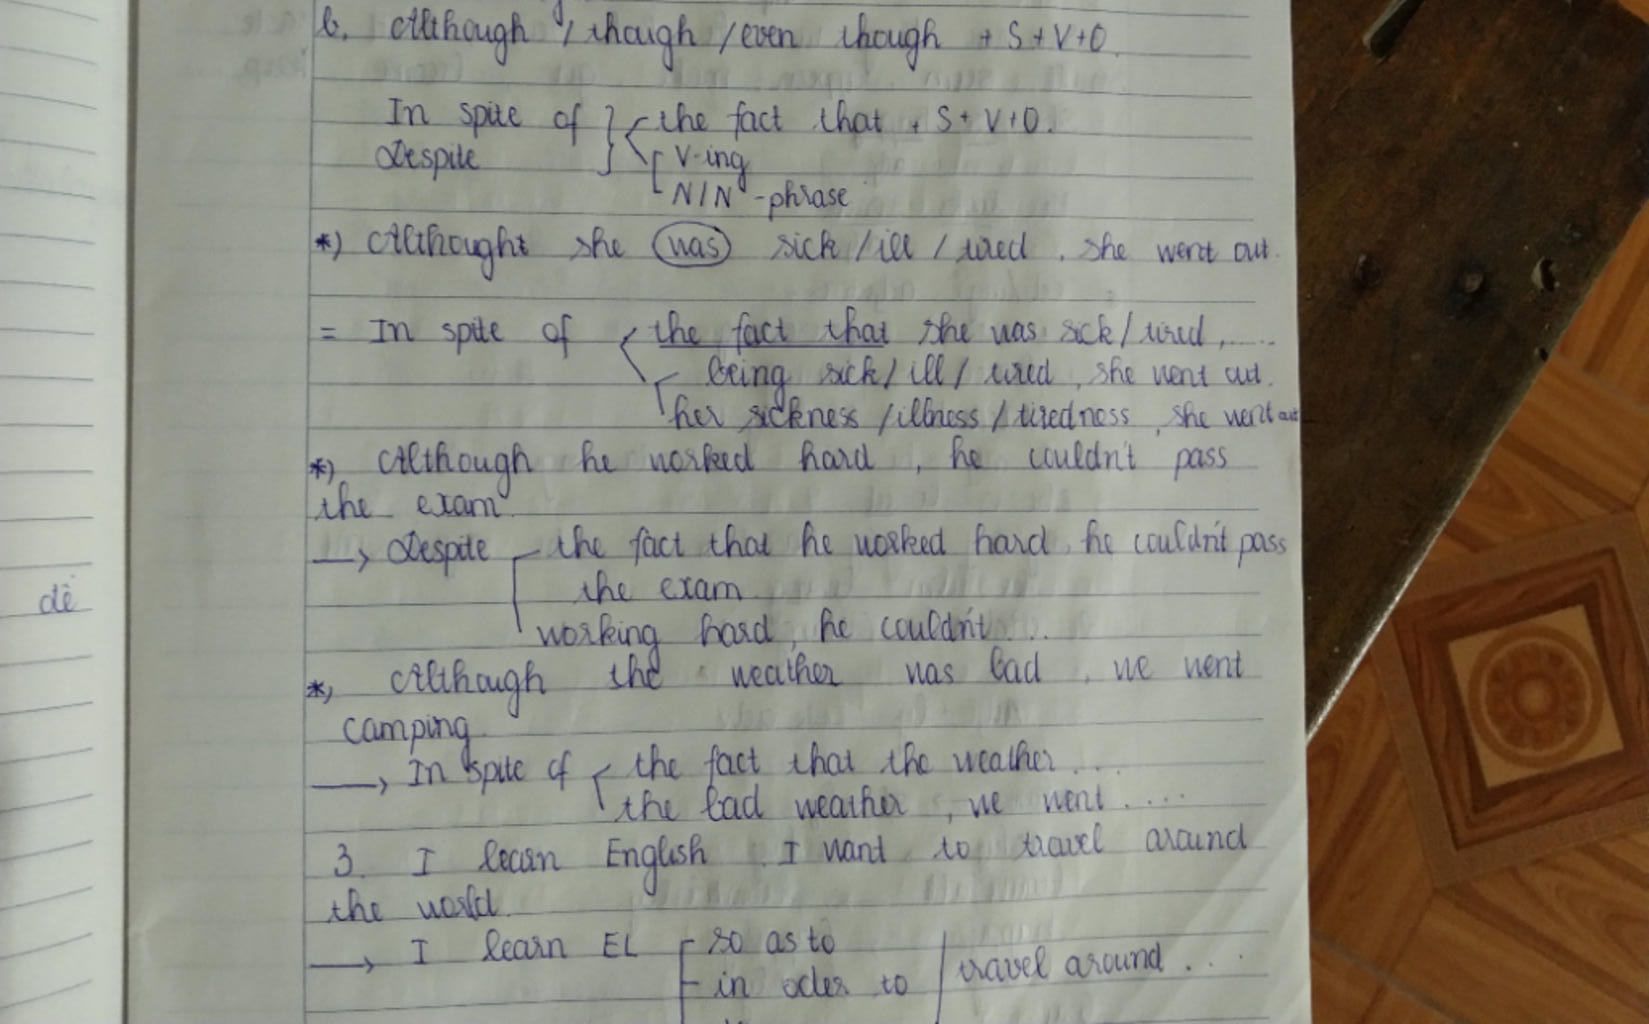 b. Although / though / even though + S + V + O.
In spite of } the fact that + S + V + O.
Despite V-ing
N/N-phrase
*) Althought she was sick / ill / tired, she went out.
= In spite of the fact that she was sick / tired, .....
being sick / ill / tired, she went out.
her sickness / illness / tiredness, she went out
*) Although he worked hard, he couldn't pass
the exam.
→ Despite the fact that he worked hard, he couldn't pass
the exam
working hard, he couldn't ...
*) Although the weather was bad, we went
camping.
→ In spite of the fact that the weather ....
the bad weather, we went ....
3. I learn English. I want to travel around
the world.
→ I learn EL so as to
in oder to travel around ....
dè